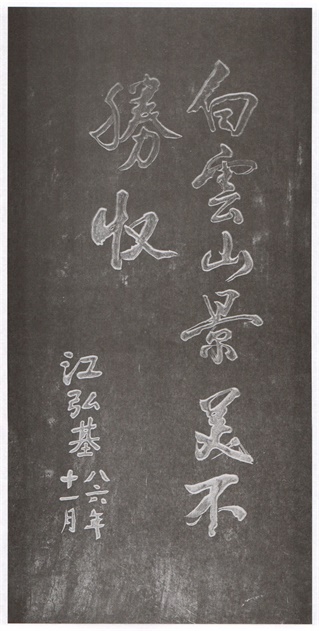 白雲山景美不
勝收
江弘基
八六年
十一月